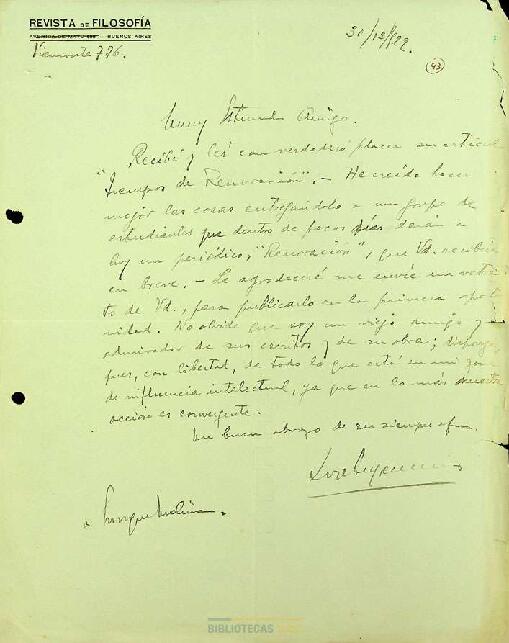 REVISTA DE FILOSOFÍA
BUENOS AIRES
Viamonte 776.
31/12/922.
43
Muy Estimado Amigo.
Recibí y leí con verdadero placer su artículo
"Tiempos de Renovación". - He creído hacer
mejor las cosas entregándolo a un grupo de
estudiantes que dentro de pocos días darán a
luz un periódico, "Renovación", que Vd. recibirá
en breve. - Le agradeceré me envíe un retra-
to de Vd., para publicarlo en la primera oportu-
nidad. No olvide que soy un viejo amigo y
admirador de sus escritos y de su obra; disponga,
pues, con libertad, de todo lo que esté en mi
de influencia intelectual, ya que en lo más nuestra
acción es convergente.
Un buen abrazo de su siempre afmo.
a Enrique Molina.
BIBLIOTECAS